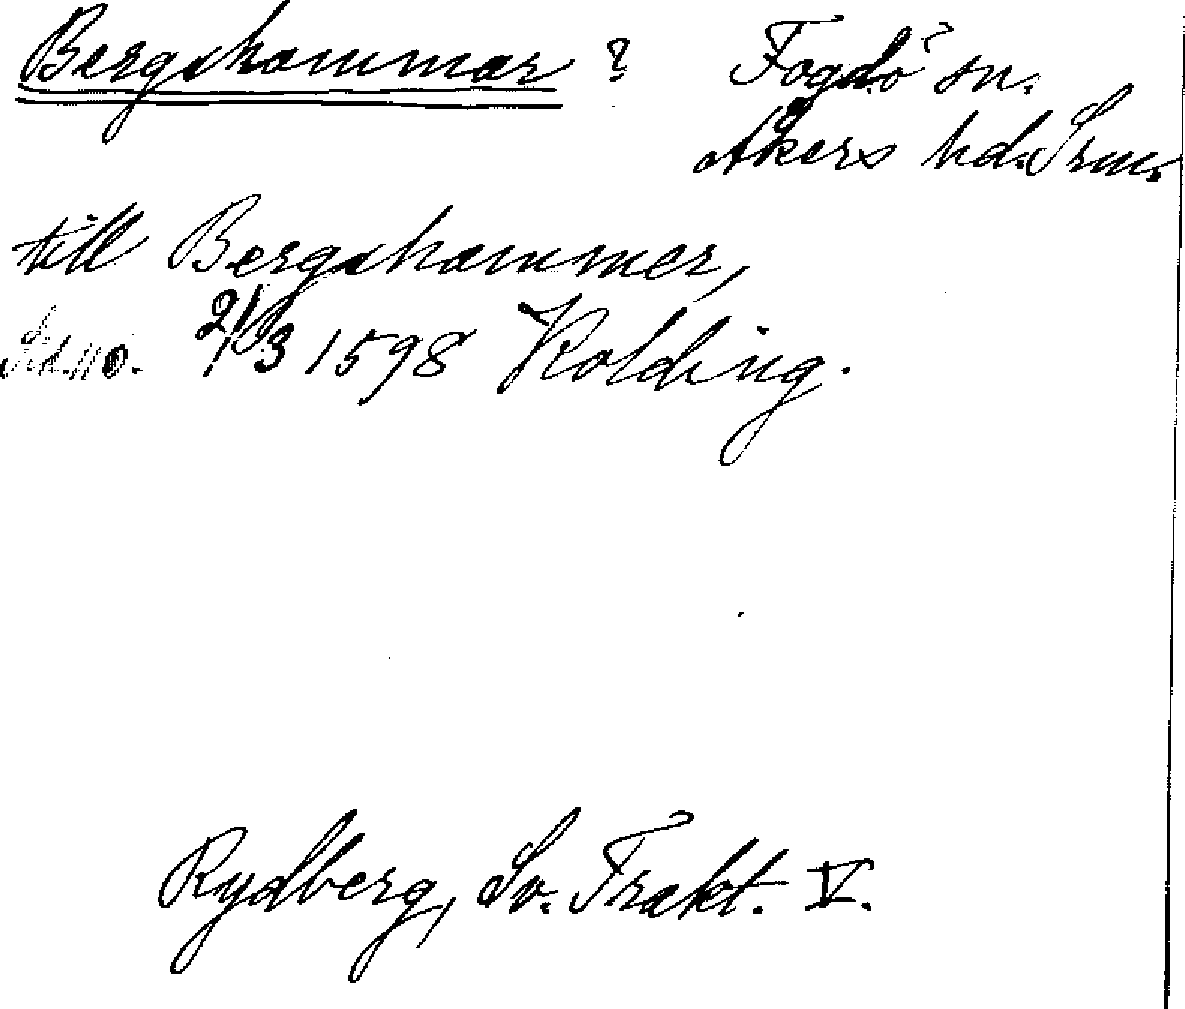 Bergshammar ? Fogdö sn.
Åkers hd. Srm.
till Bergshammer,
2/3 1598 Kolding.
Rydberg, Sv. Trakt. V.